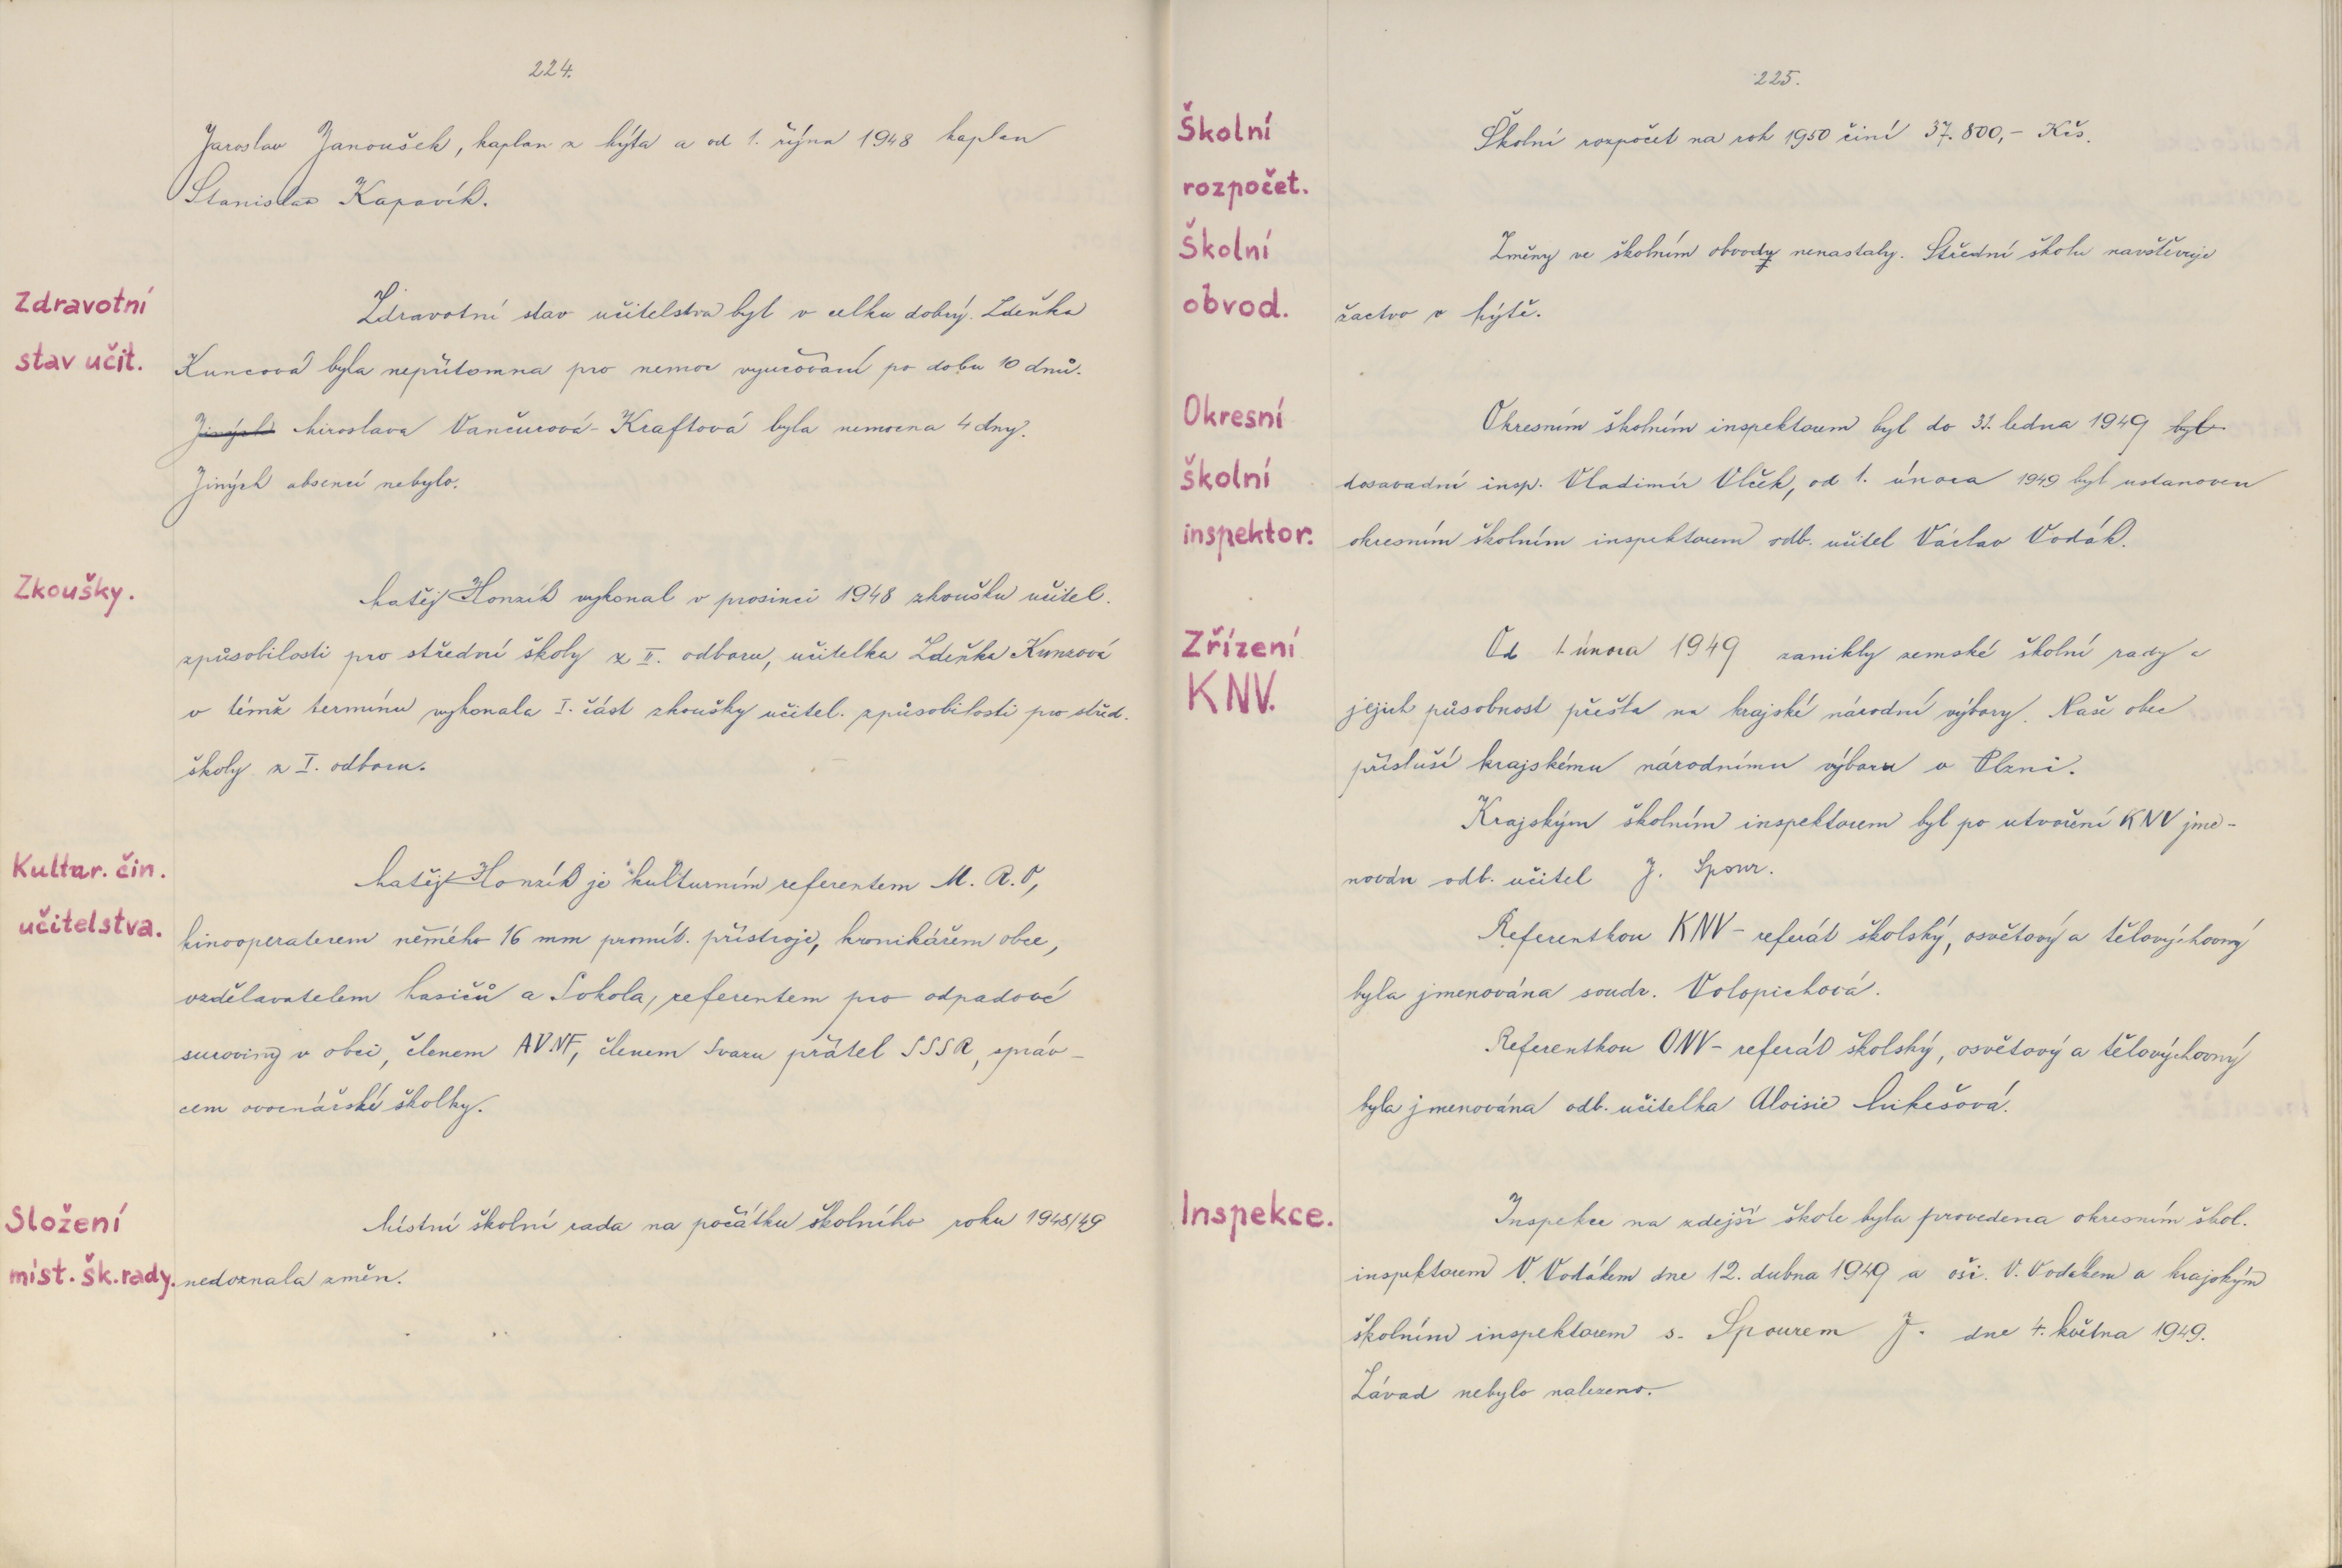 224.
Jaroslav Janoušek, kaplan z Mýta a od 1. října 1948 kaplan
Stanislav Kapavík.
Zdravotní
stav učit.
Zdravotní stav učitelstva byl v celku dobrý. Zdeňka
Kuncová byla nepřítomna pro nemoc vyučování po dobu 10 dnů.
Jiných Miroslava Vančurová-Kraftová byla nemocna 4 dny.
Jiných absencí nebylo.
Zkoušky.
Matěj Honzík vykonal v prosinci 1948 zkoušku učitel.
způsobilosti pro střední školy z II. odboru, učitelka Zdeňka Kunzová
v témž termínu vykonala I. část zkoušky učitel. způsobilosti pro střed.
školy z I. odboru.
Kultur. čin.
učitelstva.
Matěj Honzík je kulturním referentem M. R. O,
kinooperaterem němého 16 mm promít. přístroje, kronikářem obce,
vzdělavatelem hasičů a Sokola, referentem pro odpadové
suroviny v obci, členem AV.NF, členem Svazu přátel SSSR, správ-
cem ovocnářské školky.
Složení
míst. šk. rady.
Místní školní rada na počátku školního roku 1948/49
nedoznala změn.
225.
Školní
rozpočet.
Školní rozpočet na rok 1950 činí 37.800,- Kčs.
Školní
obvod.
Změny ve školním obvody nenastaly. Střední školu navštěvuje
žactvo v Mýtě.
Okresní
školní
inspektor.
Okresním školním inspektorem byl do 31. ledna 1949 byl
dosavadní insp. Vladimír Vlček, od 1. února 1949 byl ustanoven
okresním školním inspektorem odb. učitel Václav Vodák.
Zřízení
KNV.
Od 1. února 1949 zanikly zemské školní rady a
jejich působnost přešla na krajské národní výbory. Naše obec
přísluší krajskému národnímu výboru v Plzni.
Krajským školním inspektorem byl po utvoření KNV jme-
nován odb. učitel J. Spour.
Referentkou KNV - referát školský, osvětový a tělovýchovný
byla jmenována soudr. Volopichová.
Referentkou ONV - referát školský, osvětový a tělovýchovný
byla jmenována odb. učitelka Aloisie Mikešová.
Inspekce.
Inspekce na zdejší škole byla provedena okresním škol.
inspektorem V. Vodákem dne 12. dubna 1949 a oši. V. Vodakem a krajským
školním inspektorem s. Spourem J. dne 4. května 1949.
Závad nebylo nalezeno.